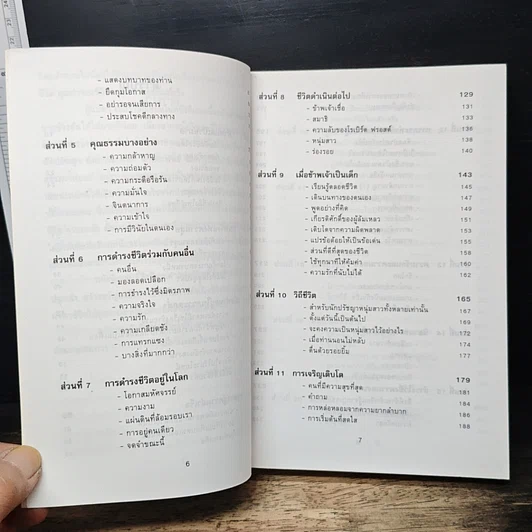 - แสดงบทบาทของท่าน
- ยึดกุมโอกาส
- อย่ารอจนเสียการ
- ประสบโชคดีกลางทาง
ส่วนที่ 5 คุณธรรมบางอย่าง
- ความกล้าหาญ
- ความถ่อมตัว
- ความกระตือรือรัน
- ความมั่นใจ
- จินตนาการ
- ความเข้าใจ
- การมีวินัยในตนเอง
ส่วนที่ 6 การดำรงชีวิตร่วมกับคนอื่น
- คนอื่น
- มองตลอดเปลือก
- การธำรงไว้ซึ่งมิตรภาพ
- ความจริงใจ
- ความรัก
- ความเกลียดชัง
- การแทรกแซง
- บางสิ่งที่มากกว่า
ส่วนที่ 7 การดำรงชีวิตอยู่ในโลก
- โอกาสมหัศจรรย์
- ความงาม
- แผ่นดินที่ล้อมรอบเรา
- การอยู่คนเดียว
- จดจำขณะนี้
6
ส่วนที่ 8 ชีวิตดำเนินต่อไป 129
- ข้าพเจ้าเชื่อ 131
- สมาธิ 133
- ความลับของโรเบิร์ต ฟรอสต์ 136
- หนุ่มสาว 138
- ร่องรอย 140
ส่วนที่ 9 เมื่อข้าพเจ้าเป็นเด็ก 143
- เรียนรู้ตลอดชีวิต 145
- เดินบนทางของตนเอง 147
- พูดอย่างที่คิด 149
- เกียรติศักดิ์ของผู้ล้มเหลว 151
- เติบโตจากความผิดพลาด 153
- แปรข้อด้อยให้เป็นข้อเด่น 155
- ส่วนที่ดีที่สุดของชีวิต 157
- ใช้ทุกนาทีให้คุ้มค่า 160
- ความรักที่นับไม่ได้ 162
ส่วนที่ 10 วิถีชีวิต 165
- สำหรับนักปรัชญาหนุ่มสาวทั้งหลายเท่านั้น 167
- ตั้งแต่วันนี้เป็นต้นไป 169
- จะคงความเป็นหนุ่มสาวไว้อย่างไร 172
- เมื่อท่านนอนไม่หลับ 174
- ตื่นด้วยรอยยิ้ม 177
ส่วนที่ 11 การเจริญเติบโต 179
- คนที่มีความสุขที่สุด 181
- คำถาม 184
- การหล่อหลอมจากความยากลำบาก 186
- การเริ่มต้นที่สดใส 188
7